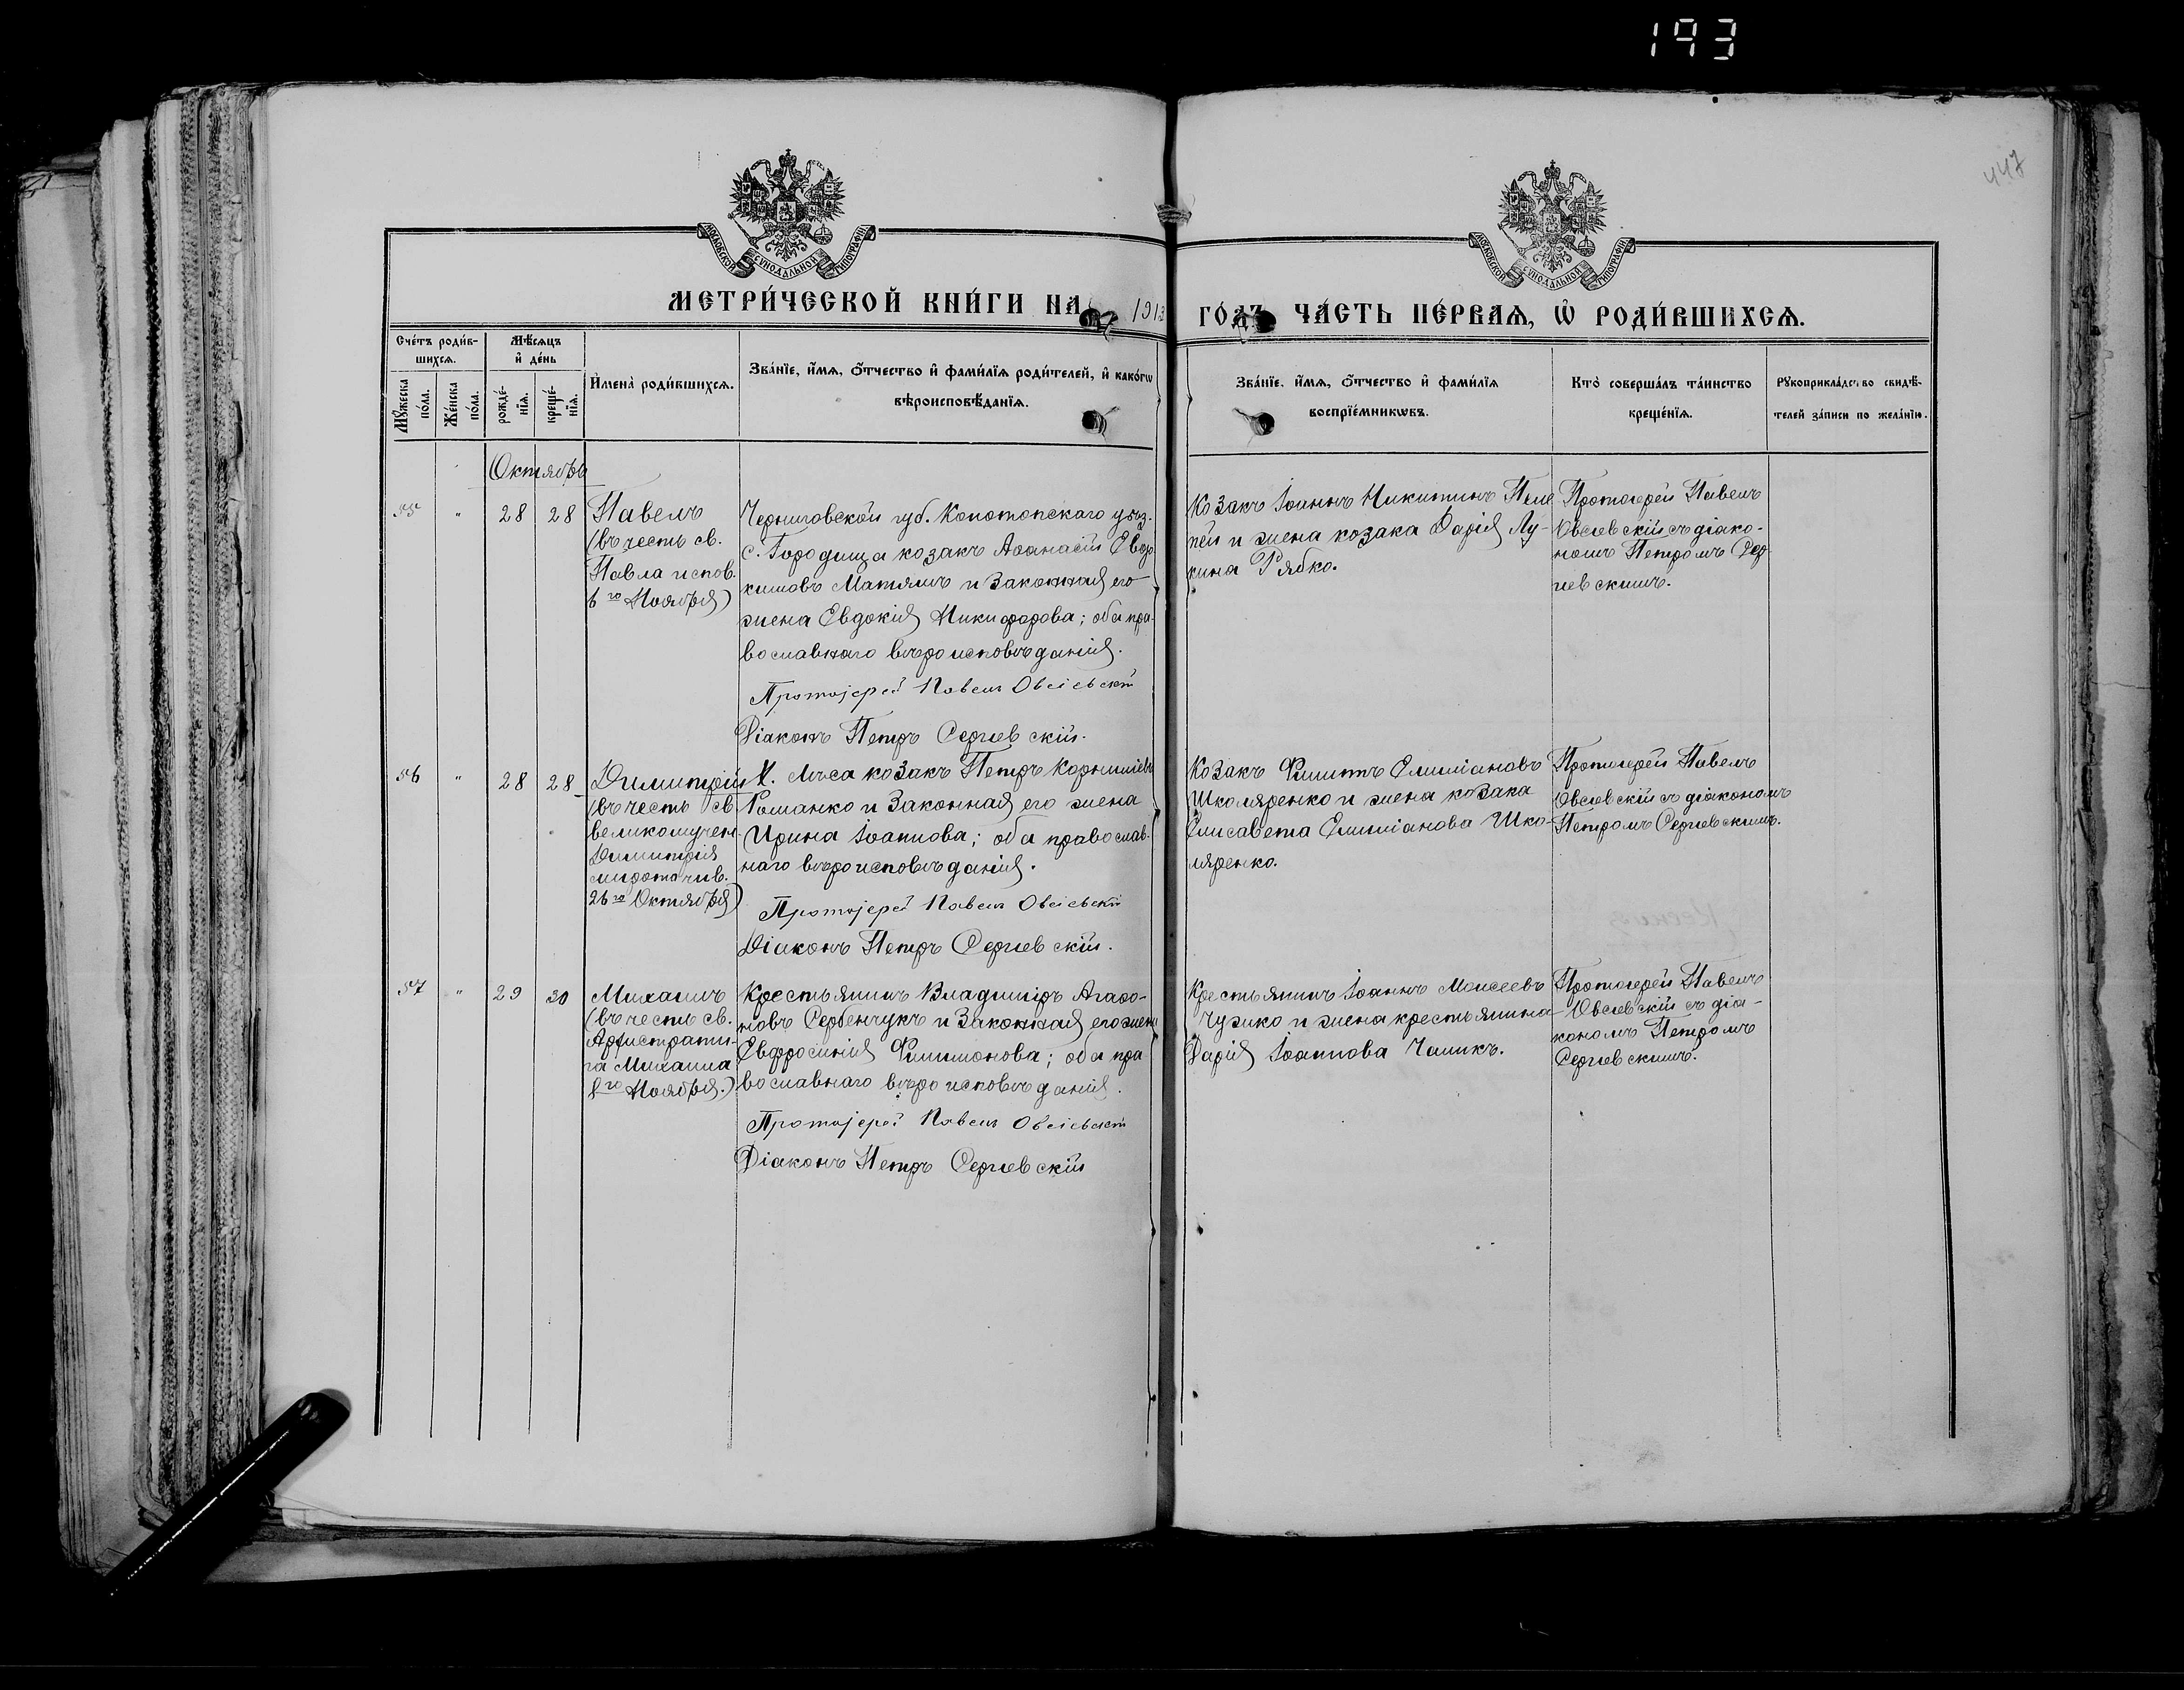 193
447
МОСКОВСКОЙ СУНОДАЛЬНОЙ ТИПОГРАФІИ
МОСКОВСКОЙ СУНОДАЛЬНОЙ ТИПОГРАФІИ
МЕТРИ́ЧЕСКОЙ КНИ́ГИ НА 1913 ГО́ДЪ ЧА́СТЬ ПЕ́РВАЯ, Ѡ҆ РОДИ́ВШИХСЯ.
Сче́тъ роди́в-
шихся.
Мꙋ́жеска
по́ла.
Же́нска
по́ла.
Мѣ́сяцъ
и҆ де́нь
рожде́-
нїя.
креще́-
нїя.
И҆мена̀ роди́вшихся.
Зва́нїе, и҆́мя, ѻ҆́тчество и҆ фами́лїя роди́телей, и҆ како́гѡ
вѣроисповѣ́данїя.
Зва́нїе, и҆́мя, ѻ҆́тчество и҆ фами́лїя
воспрїе́мникѡвъ.
Кто̀ соверша́лъ та́инство
креще́нїя.
Рꙋкоприкла́дство свидѣ́-
телей за́писи по жела́нїю.
Октябрь
55 " 28 28
Павелъ
(въ честь св.
Павла испов.
6го Ноября)
Черниговской губ. Конотопскаго уѣз.
с. Городища козакъ Аѳанасій Евдо
кимовъ Матяшъ и законная его
жена Евдокія Никифорова; оба пра-
вославнаго вѣроисповѣданія.
Протоіерей Павелъ Овсіевскій
Діаконъ Петръ Сергіевскій.
Козакъ Іоаннъ Никитинъ
и жена козака Дарія Лу-
кина Рябко.
Протоіерей Павелъ
Овсіевскій съ діако-
номъ Петромъ Сер-
гіевскимъ.
56 " 28 28
Димитрій
(въ честь св.
великомучен.
Димитрія
мироточив.
26го Октября)
М. козакъ Петръ Корниліевъ
Романко и законная его жена
Ирина Іоаннова; оба православ-
наго вѣроисповѣданія.
Протоіерей Павелъ Овсіевскій
Діаконъ Петръ Сергіевскій.
Козакъ Филиппъ Емиліановъ
Школяренко и жена козака
Елисавета Емиліанова Шко-
ляренко.
Протоіерей Павелъ
Овсіевскій съ діакономъ
Петромъ Сергіевскимъ.
57 " 29 30
Михаилъ
(въ честь св.
Архистрати-
га Михаила
8го Ноября.)
Крестьянинъ Владиміръ Агаѳо-
новъ Сербенчукъ и законная его жена
Евфросинія Филимонова; оба пра
вославнаго вѣроисповѣданія.
Протоіерей Павелъ Овсіевскій
Діаконъ Петръ Сергіевскій
Крестьянинъ Іоаннъ Моисеевъ
Чужко и жена крестьянина
Дарія Іоаннова Чаликъ.
Протоіерей Павелъ
Овсіевскій съ діа-
кономъ Петромъ
Сергіевскимъ.